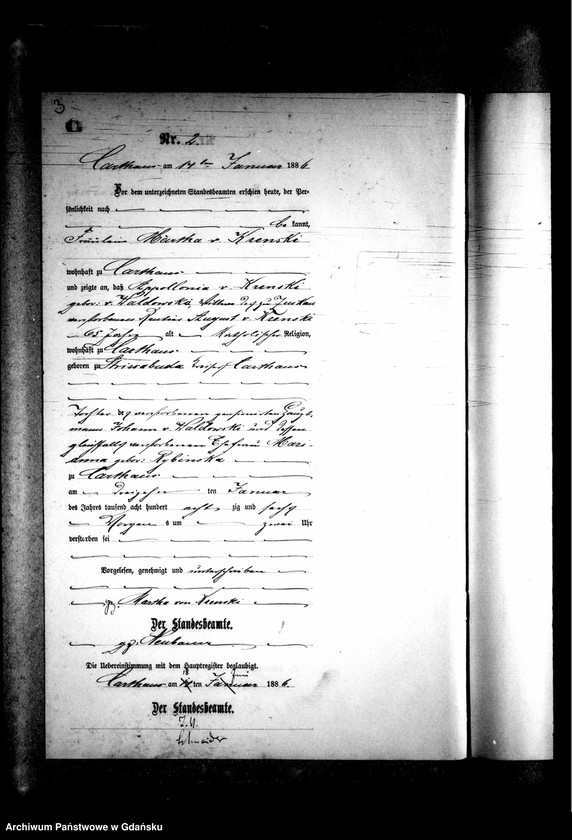 3
C.
Nr. 2.
Carthaus am 14 ten Januar 1886
Vor dem unterzeichneten Standesbeamten erschien heute, der Per-
sönlichkeit nach
be kannt,
Fräulein Martha v. Krenski
wohnhaft zu Carthaus
und zeigte an, daß Appollonia v. Krenski
gebor: v. Waldowski, Wittwe des zu
verstorbenen Rentier August v. Krenski
65 Jahre alt Katholischer Religion,
wohnhaft zu Carthaus
geboren zu Strissabuda Kreises Carthaus
Tochter des verstorbenen pensionirten Haupt-
manns Johann v. Waldowski und dessen
gleichfalls verstorbenen Ehefrau Mari-
anna gebor: Rybinska
zu Carthaus
am dreizehn ten Januar
des Jahres tausend acht hundert acht zig und sechs
Morgen s um zwei Uhr
verstorben sei
Vorgelesen, genehmigt und unterschrieben
gz. Martha von Krenski
Der Standesbeamte.
gz. Neubauer
Die Uebereinstimmung mit dem Hauptregister beglaubigt.
Carthaus am ten Januar 1886.
Der Standesbeamte.
Schneider
Archiwum Państwowe w Gdańsku